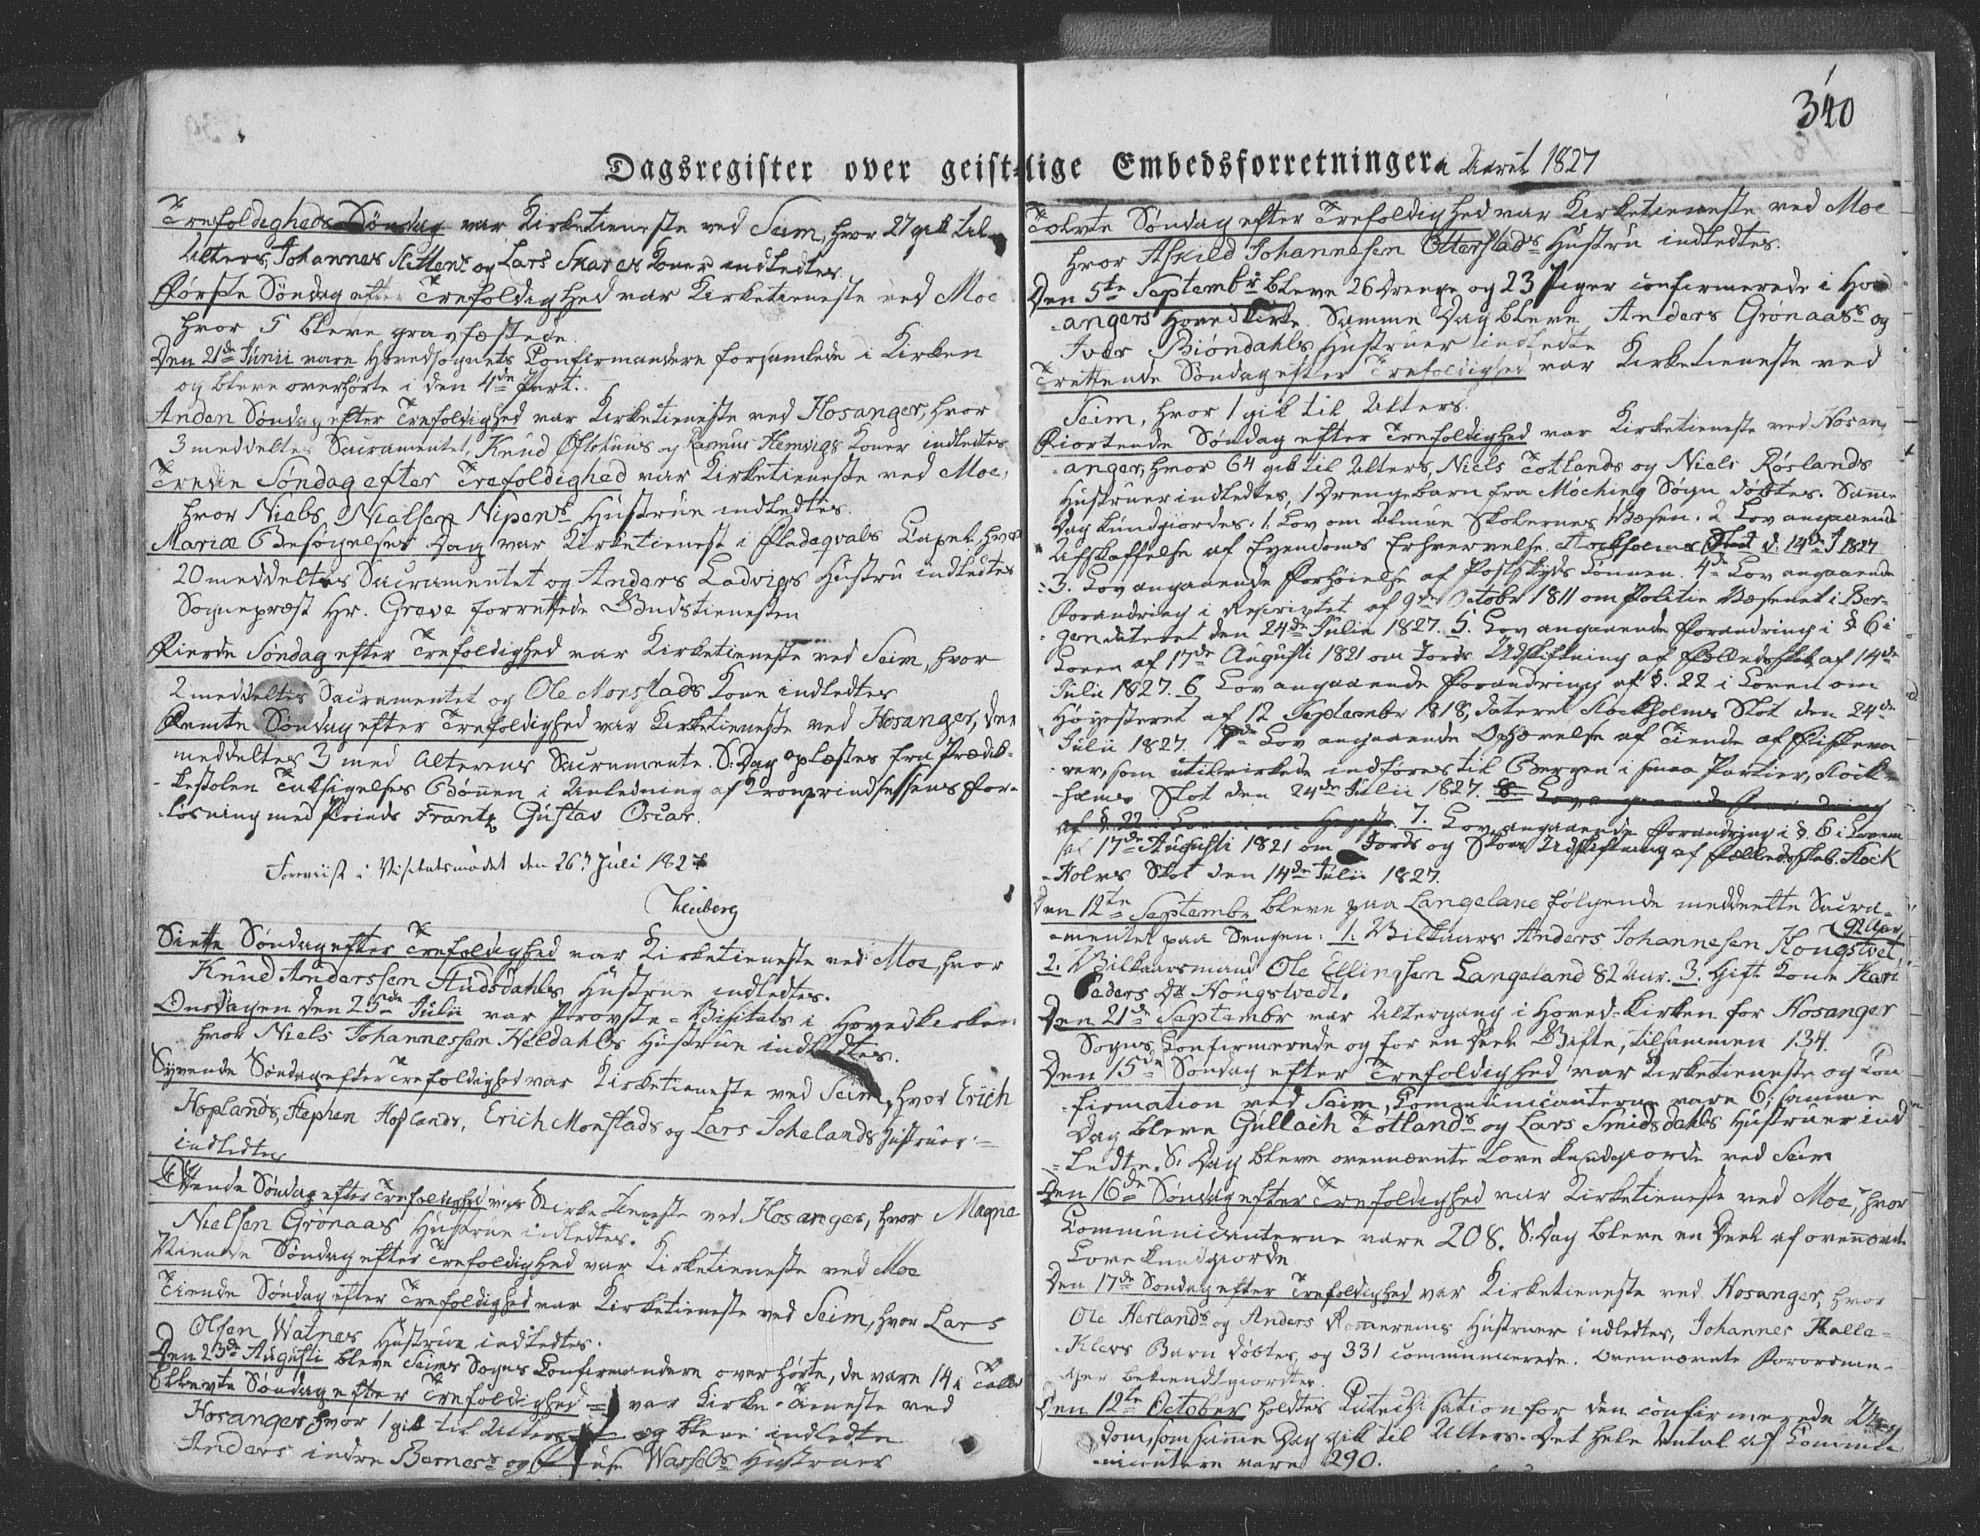 340
Dagsregister over geistlige Embedsforretninger. Aaret 1827
Trefoldigheds Söndag var Kirketieneste ved Seim, hvor 27 gik til
Alters, Johannes og Lars Skares Koner indledtes.
Förste Söndag efter Trefoldighed var Kirketieneste ved Moe
hvor 5 bleve gravfæstede.
Den 21de Junii vare Hovedsognets Confirmandere forsamlede i Kirken
og bleve overhörte i den 4de Part.
Anden Söndag efter Trefoldighed var Kirketieneste ved Hosanger, hvor
3 meddeltes Sacramentet, Knud og Rasmus Hemvigs Koner indledtes
Tredie Söndag efter Trefoldighed var Kirketieneste ved Moe,
hvor Niels Nielsen Nipens Hustrue indledtes.
Mariæ Besögelses Dag var Kirketienest i Fladaqvals Capel, hvor
20 meddeltes Sacramentet og Anders Ladvigs Hustru indledtes
Sognepræst Hr. Greve forrettede Gudstienesten
Fierde Söndag efter Trefoldighed var Kirketieneste ved Seim, hvor
2 meddeltes Sacramentet og Ole Monstads Kone indledtes
Femte Söndag efter Trefoldighed var Kirketieneste ved Hosanger, den
meddeltes 3 med Alterens Sacramente. S: Dag oplæstes fra Prædik-
kestolen Taksigelses Bönnen i Anledning af Kronprindsessens For-
lösning med Prinds Frantz Gustav Oscar.
Foreviist i Visitatsmödet den 26 Juli 1827
Siette Söndag efter Trefoldighed var Kirketieneste ved Moe, hvor
Knud Anderssen Hudsdahls Hustrue indledtes.
Onsdagen den 25de Julii var Provste-Visitats i Hovedkirken
hvor Niels Johannessen Heldahls Hustrue indledtes.
Syvende Söndag efter Trefoldighed var Kirketieneste ved Seim, hvor Erich
Hoplands, Stephen Hoplands, Erich Monstads og Lars Hustruer
indledtes
Ottende Söndag efter Trefoldighed var Kirketieneste ved Hosanger, hvor Magne
Nielsen Grönaas Hustrue indledtes.
Niende Söndag efter Trefoldighed var Kirketieneste ved Moe
Tiende Söndag efter Trefoldighed var Kirketieneste ved Seim, hvor Lars
Olsen Watnes Hustrue indledtes.
Den 23de Augusti bleve Seims Sogns Confirmandere overhörte, de vare 14 i Tallet
Ellevte Söndag efter Trefoldighed var Kirke-Tieneste ved
Hosanger, hvor 1 gik til Alters og bleve indledte
Anders indre Bernes og Hustruer
Tolvte Söndag efter Trefoldighed var Kirketieneste ved Moe
hvor Askild Johannesen Otterstads Hustru indledtes.
Den 5te Septembr bleve 26 Drenge og 23 Piger confirmerede i Hos-
angers Hovedkirke. Samme Dag bleve Anders Grönaass og
Iver Biöndahls Hustruer indledte
Trettende Söndag efter Trefoldighed var Kirketieneste ved
Seim, hvor 1 gik til Alters.
Fiortende Söndag efter Trefoldighed var Kirketieneste ved Hosan-
anger, hvor 64 gik til Alters, Niels Totlands og Niels Röslands
Hustruer indledtes, 1 Drengebarn fra Sogn döbtes. Samme
Dag kundgiordes: 1. Lov om Almue Skolernes Væsen. 2 Lov angaaende
Afskaffelse af Eyendoms Erhvervelse. Stockholms Slot d. 14de J 1827
3. Lov angaaende Forhöielse af Postskyds Lönnen. 4de Lov angaaende
Forandring i Rescriptet af 9de Octobr 1811 om Politie Væsenet i Ber-
gen dateret den 24de Julii 1827. 5. Lov angaaende Forandring i § 6 i
Loven af 17de Augusti 1821 om Jords Udskiftning af Fælledsskab af 14de
Julii 1827. 6 Lov angaaende Forandring af §. 22 i Loven om
Höyesteret af 12 Septembr 1818, dateret Stockholms Slot den 24de
Julii 1827. 7de Lov angaaende Ophævelse af Tiende af Fiskeva-
rer, som utilvirkede indföres til Bergen i smaa Partier, Stock-
holms Slot den 24de Julii 1827. 8. Lov angaaende Forandring
af §. 22 i Loven om 7. Lov angaaende Forandring i §. 6 i Loven
af 17de Augusti 1821 om Jords og Skovs Udskiftning af Fælledsskab. Stock
Holms Slot den 14de Julii 1827.
Den 12te Septembr bleve paa Langeland fölgende meddeelte Sacra-
mentet paa Sengen: 1. Vilkaars Anders Johannesen Hougstvet, 92 Aar,
2. Vilkaarsmand Ole Ellingsen Langeland 82 Aar. 3. Gift Kone Kari
Peders Dr Hougstvedt.
Den 21de Septembr var Altergang i Hoved-Kirken for Hosanger
Sogns Confirmerede og for en Deel Gifte, tilsammen 134.
Den 15de Söndag efter Trefoldighed var Kirketieneste og Con
firmation ved Seim, Communicanterne vare 6; samme
Dag bleve Gullach Totlands og Lars Smidsdahls Hustruer ind
ledte. S: Dag bleve ovennævnte Love kundgiorde ved Seim
Den 16de Söndag efter Trefoldighed var Kirketieneste ved Moe, hvor
Communicanterne vare 208. S: Dag bleve en Deel af ovennævnte
Love kundgiorde
Den 17de Söndag efter Trefoldighed var Kirketieneste ved Hosanger, hvor
Ole Herlands og Anders Hustruer indledtes, Johannes Halle-
Barn döbtes, og 331 communicerede. Ovennævnte Forordnin-
ger bekiendtgiordtes.
Den 12te October holdtes Catechisation for den confirmerede Ung
dom, som samme Dag gik til Alters. Det hele Antal af Commu
nicantere vare 290.